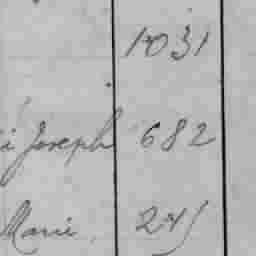 1031
i Joseph 682
Marie 245